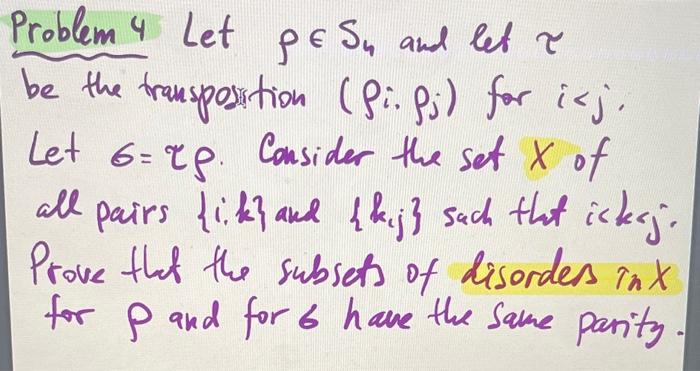 Problem 4 Let ρ ∈ Sn and let τ
be the transposition (ρi, ρj) for i<j.
Let σ = τρ. Consider the set X of
all pairs {i,k} and {k,j} such that i<k<j.
Prove that the subsets of disorders in X
for ρ and for σ have the same parity.